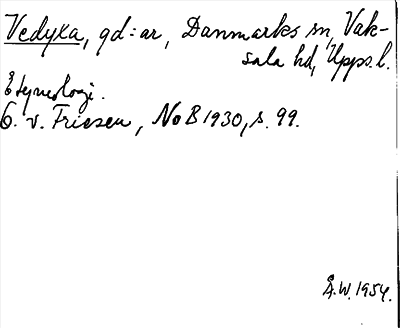 Vedyxa, gd:ar, Danmarks sn, Vak-
sala hd, Upps. l.
Etymologi.
O. v. Friesen, NoB 1930, s. 99.
Å.W. 1954.